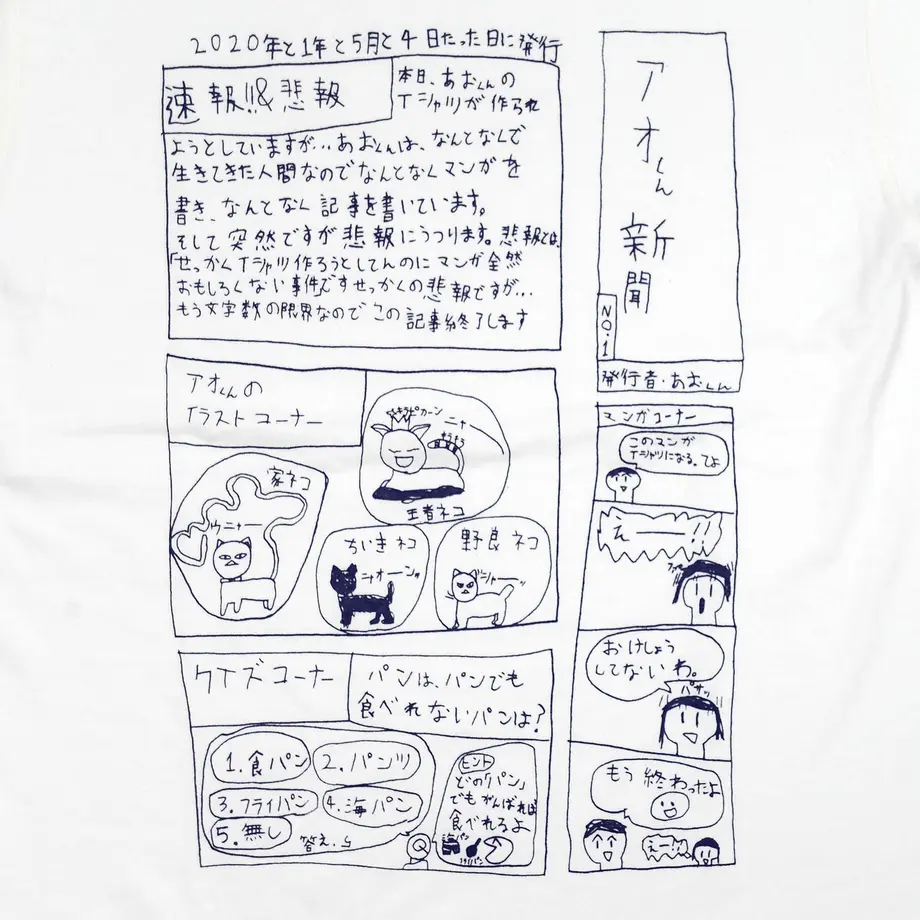 2020年と1年と5月と4日たった日に発行
アオくん新聞
NO.1
発行者・あおくん
速報!!&悲報
本日、あおくんの
Tシャツが作られ
ようとしていますが…あおくんは、なんとなくで
生きてきた人間なのでなんとなくマンガを
書き、なんとなく記事を書いています。
そして突然ですが悲報にうつります。悲報とは、
「せっかくTシャツ作ろうとしてんのにマンガ全然
おもしろくない事件」ですせっかくの悲報ですが…
もう文字数の限界なのでこの記事終了します
マンガコーナー
このマンガが
Tシャツになる。てよ
えー!!
おけしょう
してないわ。
パサッ
もう終わったよ
えー!!
アオくんの
イラストコーナー
ニャ
王者ネコ
家ネコ
ウニャー
ちいきネコ
ニャオーン
野良ネコ
シャーッ
クイズコーナー
パンは、パンでも
食べれないパンは?
1.食パン
2.パンツ
3.フライパン
4.海パン
5.無し
答え.5
ヒント
どの「パン」
でもがんばれば
食べれるよ
海パン
フライパン